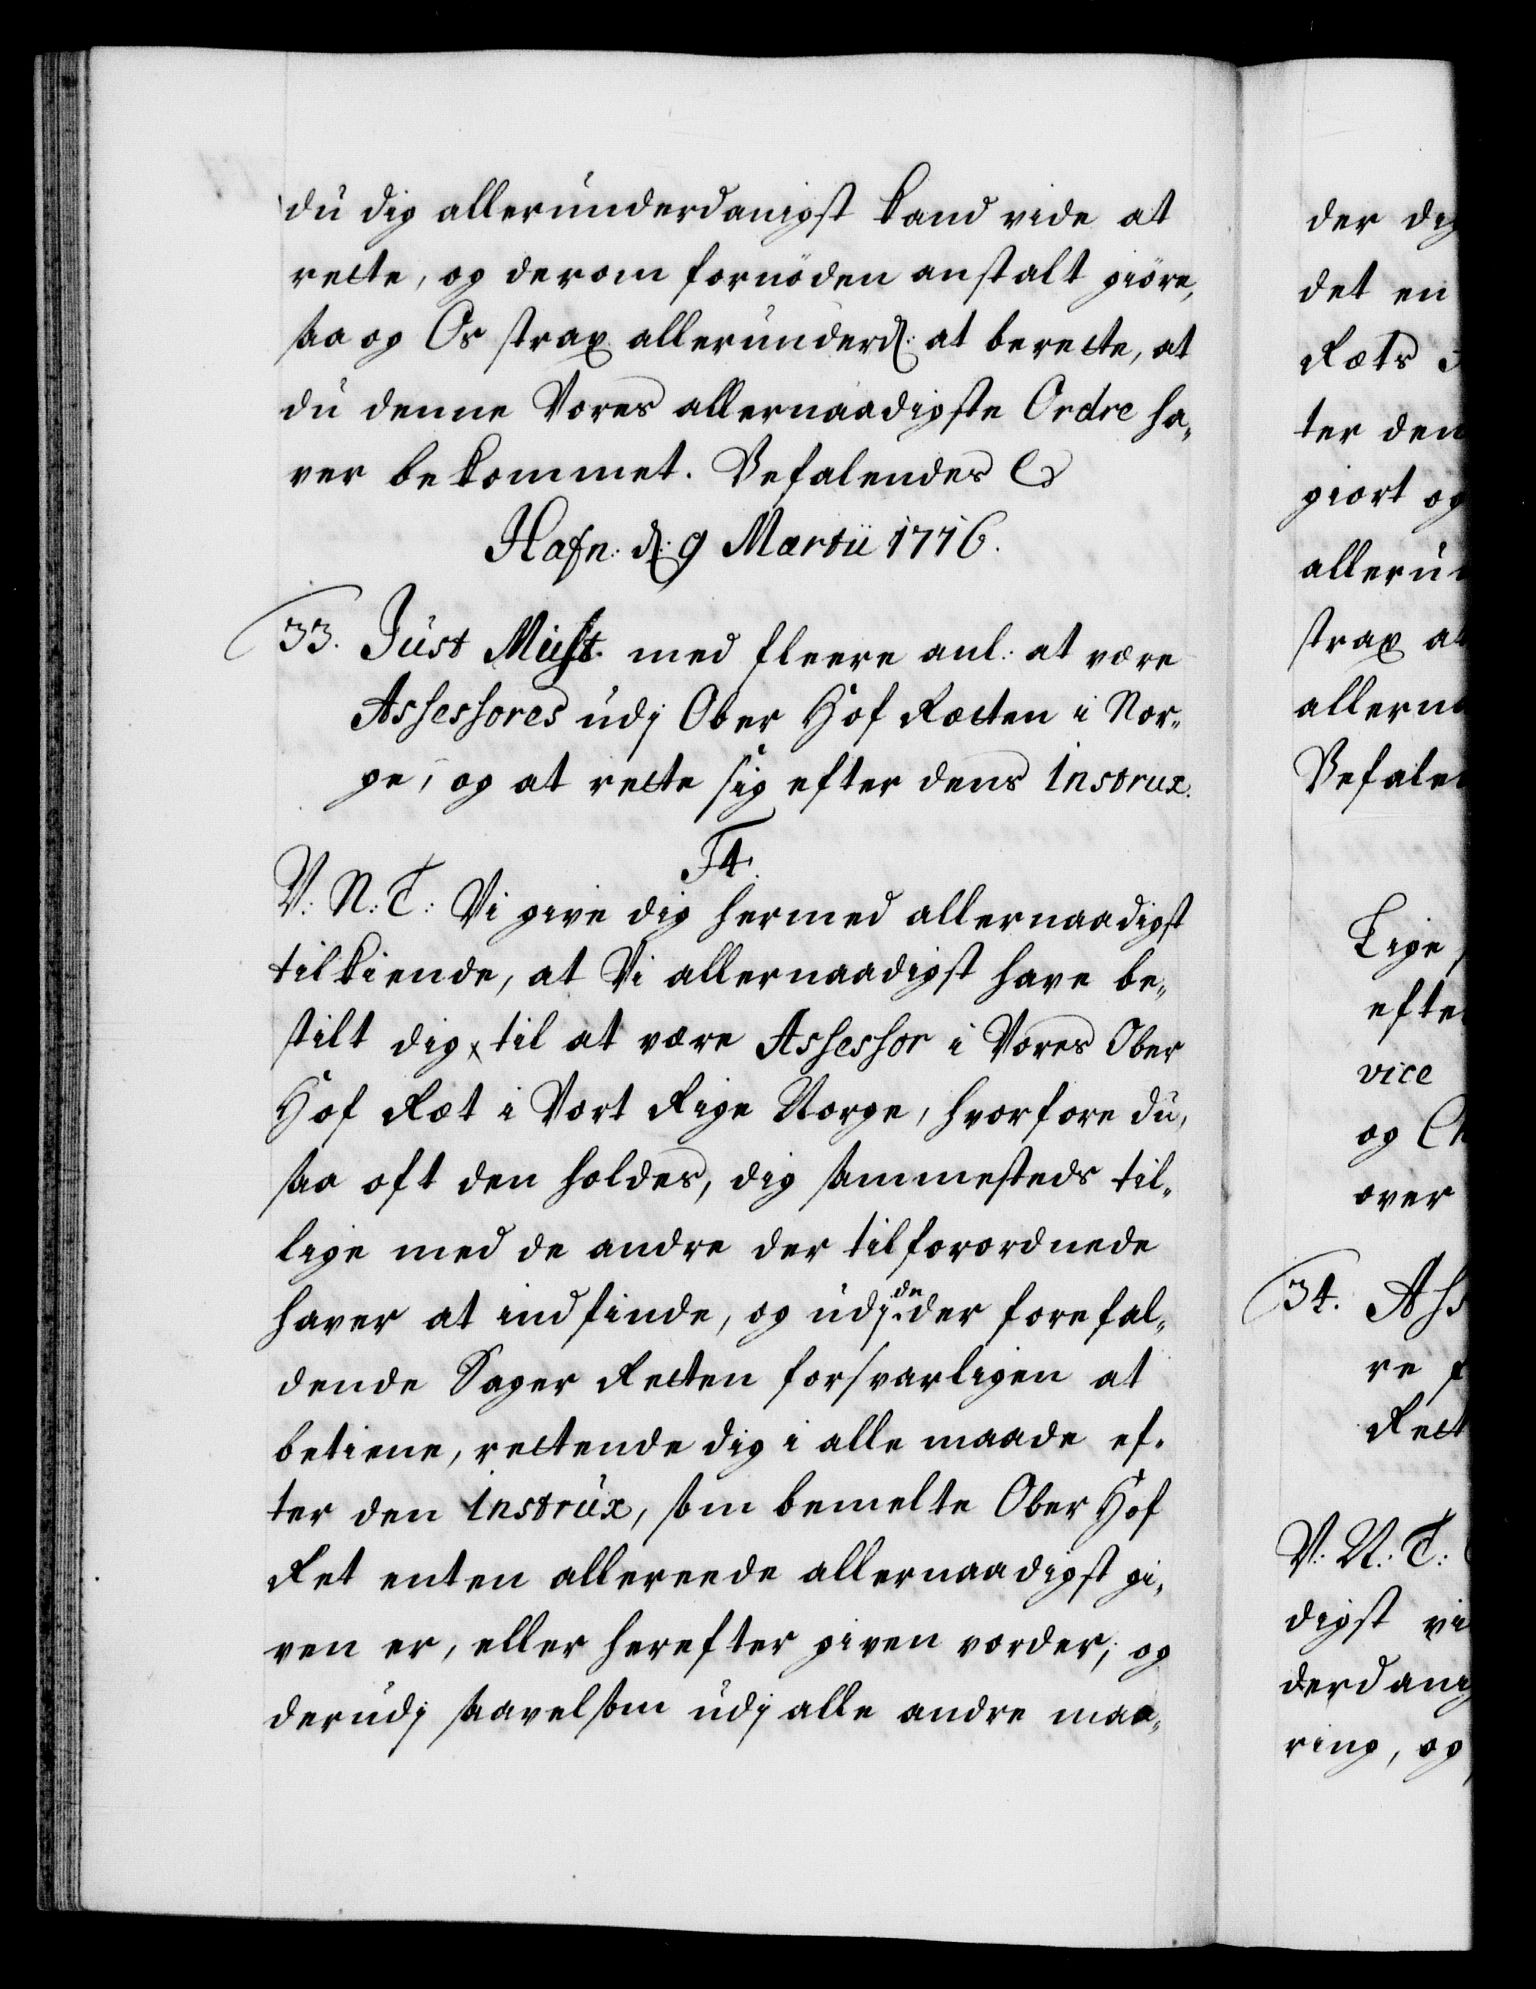 du dig allerunderdanigst kand vide at
rette, og derom fornöden anstalt giöre,
saa og Os strax allerunderd: at berette, at
du denne Vores allernaadigste Ordre ha„
ver bekommet. Befalendes &
Hafn: d: 9 Martii 1716.
33. Just Must med fleere anl: at være
Assessores udj Ober Hof Rætten i Nor„
ge, og at rette sig efter dens instrux.
F4.
V: N: T: Vi give dig hermed allernaadigst
tilkiende, at Vi allernaadigst have be„
stilt dig x til at være Assessor i Vores Ober
Hof Ræt i Vort Rige Norge, hvorfore du,
saa oft den holdes, dig sammesteds til„
lige med de andre der tilforordnede
haver at indfinde, og udj de der forefal„
dende Sager Retten forsvarligen at
betiene, rettende dig i alle maade ef„
ter den instrux, som bemelte Ober Hof
Ret enten allereede allernaadigst gi„
ven er, eller herefter given vorder, og
derudj saavelsom udj alle andre maa„
der dig
det en
Ræts
ter den
giort og
strax at
Lige
vice
over
34.
re
V: N: T:
digst vi
ring, og